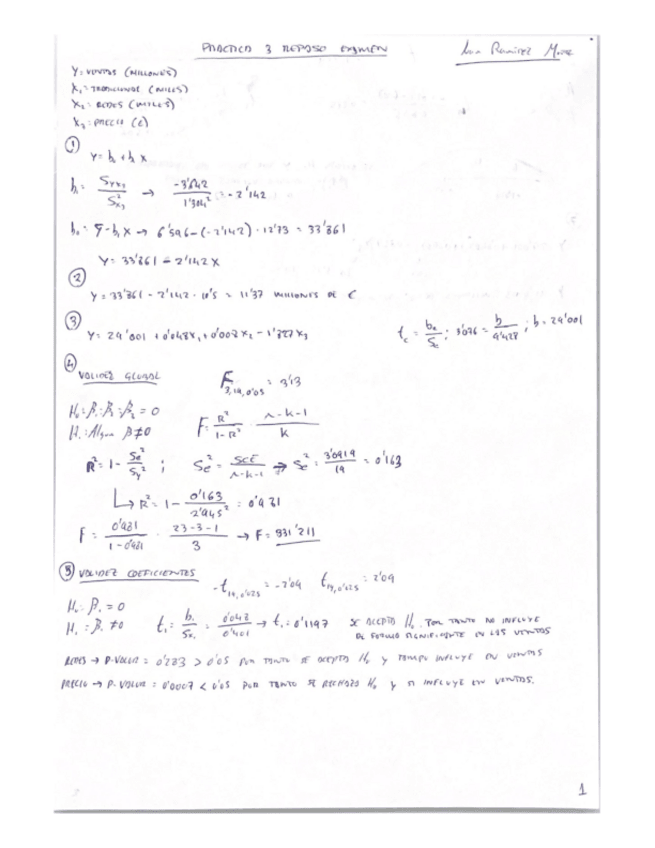 PRACTICA 3 REPASO EXAMEN
Y: VENTAS (MILLONES)
X₁: TRADICIONAL (MILES)
X₂: REDES (MILES)
X₃: PRECIO (£)
①
Y = b₀ + b₁ X
b₁ = Syx₃ / S²x₃ → -3'642 / 1'304² = -2'142
b₀ = ȳ - b₁ x → 6'596 - (-2'142) · 12'73 = 33'861
Y = 33'861 - 2'142 X
②
Y = 33'861 - 2'142 · 10'5 = 11'37 MILLONES DE €
③
Y = 29'001 + 0'048X₁ + 0'002X₂ - 1'827X₃
; b = 29'001
④ VALIDEZ GLOBAL
F₃,₁₉,₀'₀₅ = 3'13
H₀: β₁ = β₂ = β₃ = 0
H₁: Algun β ≠ 0
F = R² / 1 - R² · n - k - 1 / k
R² = 1 - Se² / Sy² ; Se² = SCE / n-k-1 → Se² = 3'0919 / 19 = 0'163
R² = 1 - 0'163 / 2'945² = 0'981
F = 0'981 / 1 - 0'981 · 23-3-1 / 3 → F = 331'211
⑤ VALIDEZ COEFICIENTES
-t₁₉,₀'₀₂₅ = -2'09 t₁₉,₀'₀₂₅ = 2'09
H₀: β₁ = 0
H₁: β₁ ≠ 0
t₁ = b₁ / Sx₁ = 0'048 / 0'401 → t₁ = 0'1197 SE ACEPTA H₀. POR TANTO NO INFLUYE
DE FORMA SIGNIFICANTE EN LAS VENTAS
REDES → P-VALUE = 0'283 > 0'05 POR TANTO SE ACEPTA H₀ Y TAMPOCO INFLUYE EN VENTAS
PRECIO → P-VALUE = 0'0007 < 0'05 POR TANTO SE RECHAZA H₀ Y SI INFLUYE EN VENTAS.
1